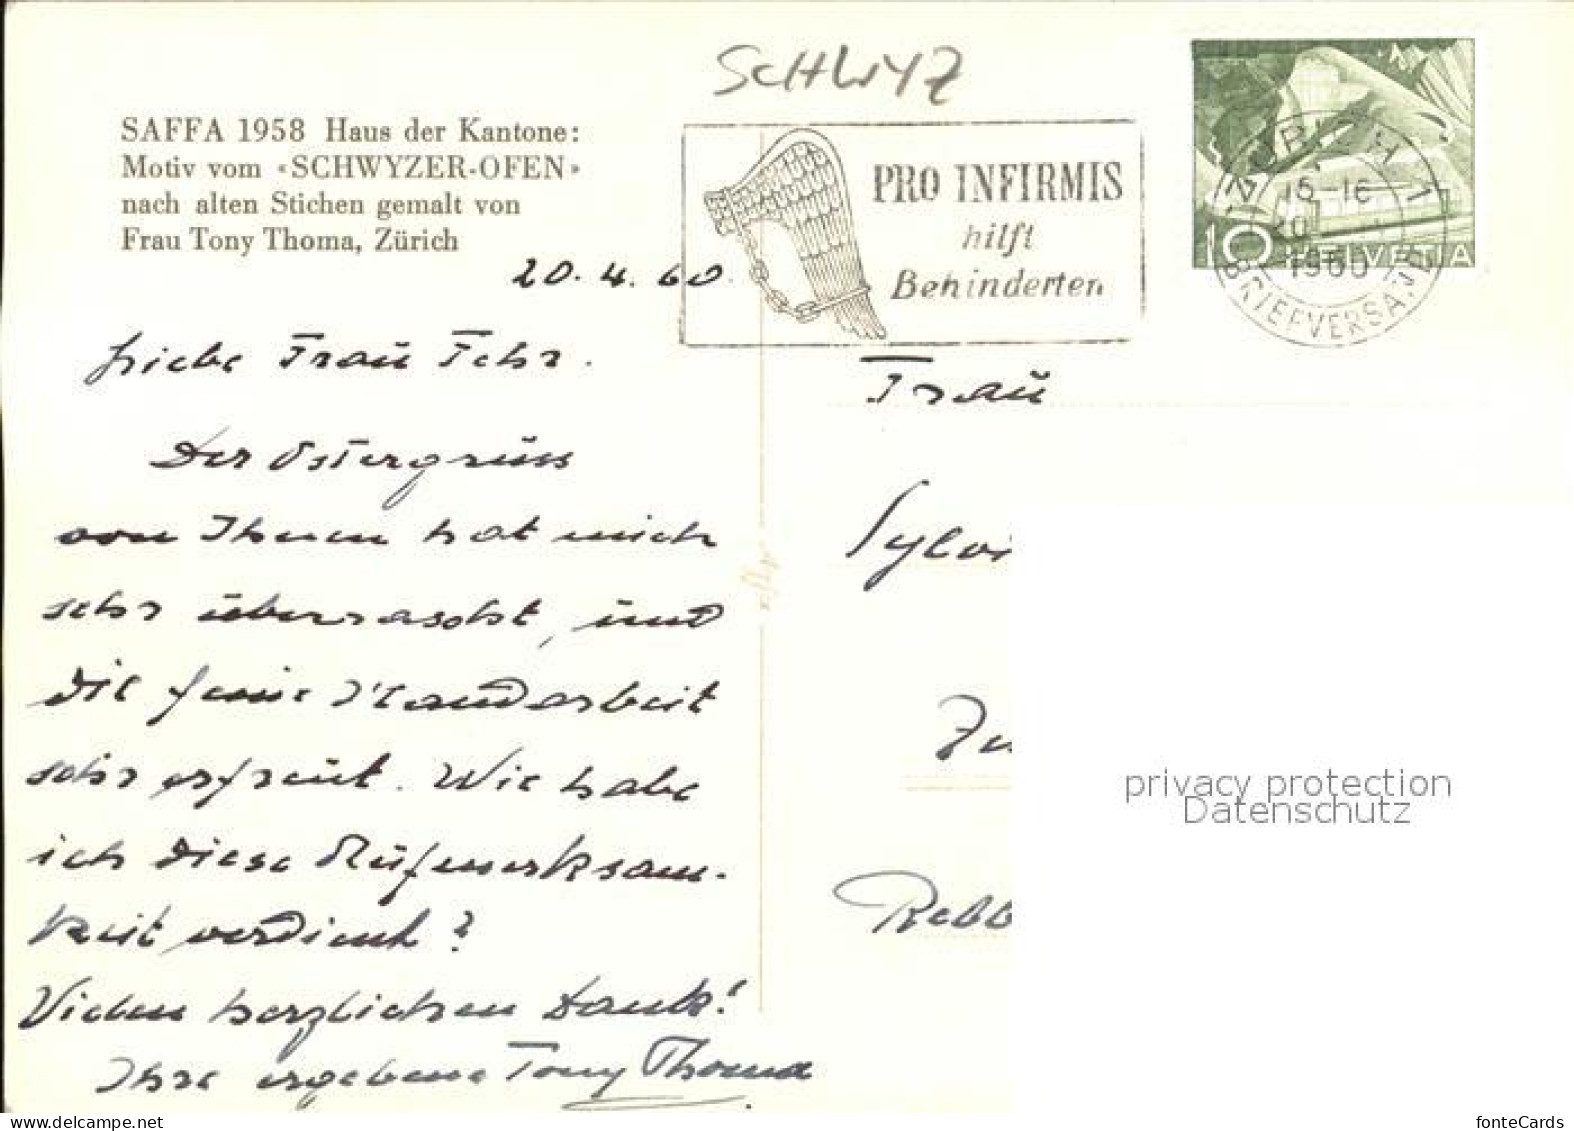 SCHWYZ
SAFFA 1958 Haus der Kantone:
Motiv vom «SCHWYZER-OFEN»
nach alten Stichen gemalt von
Frau Tony Thoma, Zürich
PRO INFIRMIS
hilft
Behinderten
ZÜRICH 1
15-16
20
1960
BRIEFVERSAND
10 HELVETIA
20.4.60.
Liebe Frau Fehr.
Der Ostergrüss
von Ihnen hat mich
sehr überrascht, und
die feine Handarbeit
sehr erfreut. Wie habe
ich diese Aufmerksam-
keit verdient?
Vielen herzlichen Dank!
Ihre ergebene Tony Thoma
Frau
Sylvi
Zu
Rebb
privacy protection
Datenschutz
www.delcampe.net
fonteCards